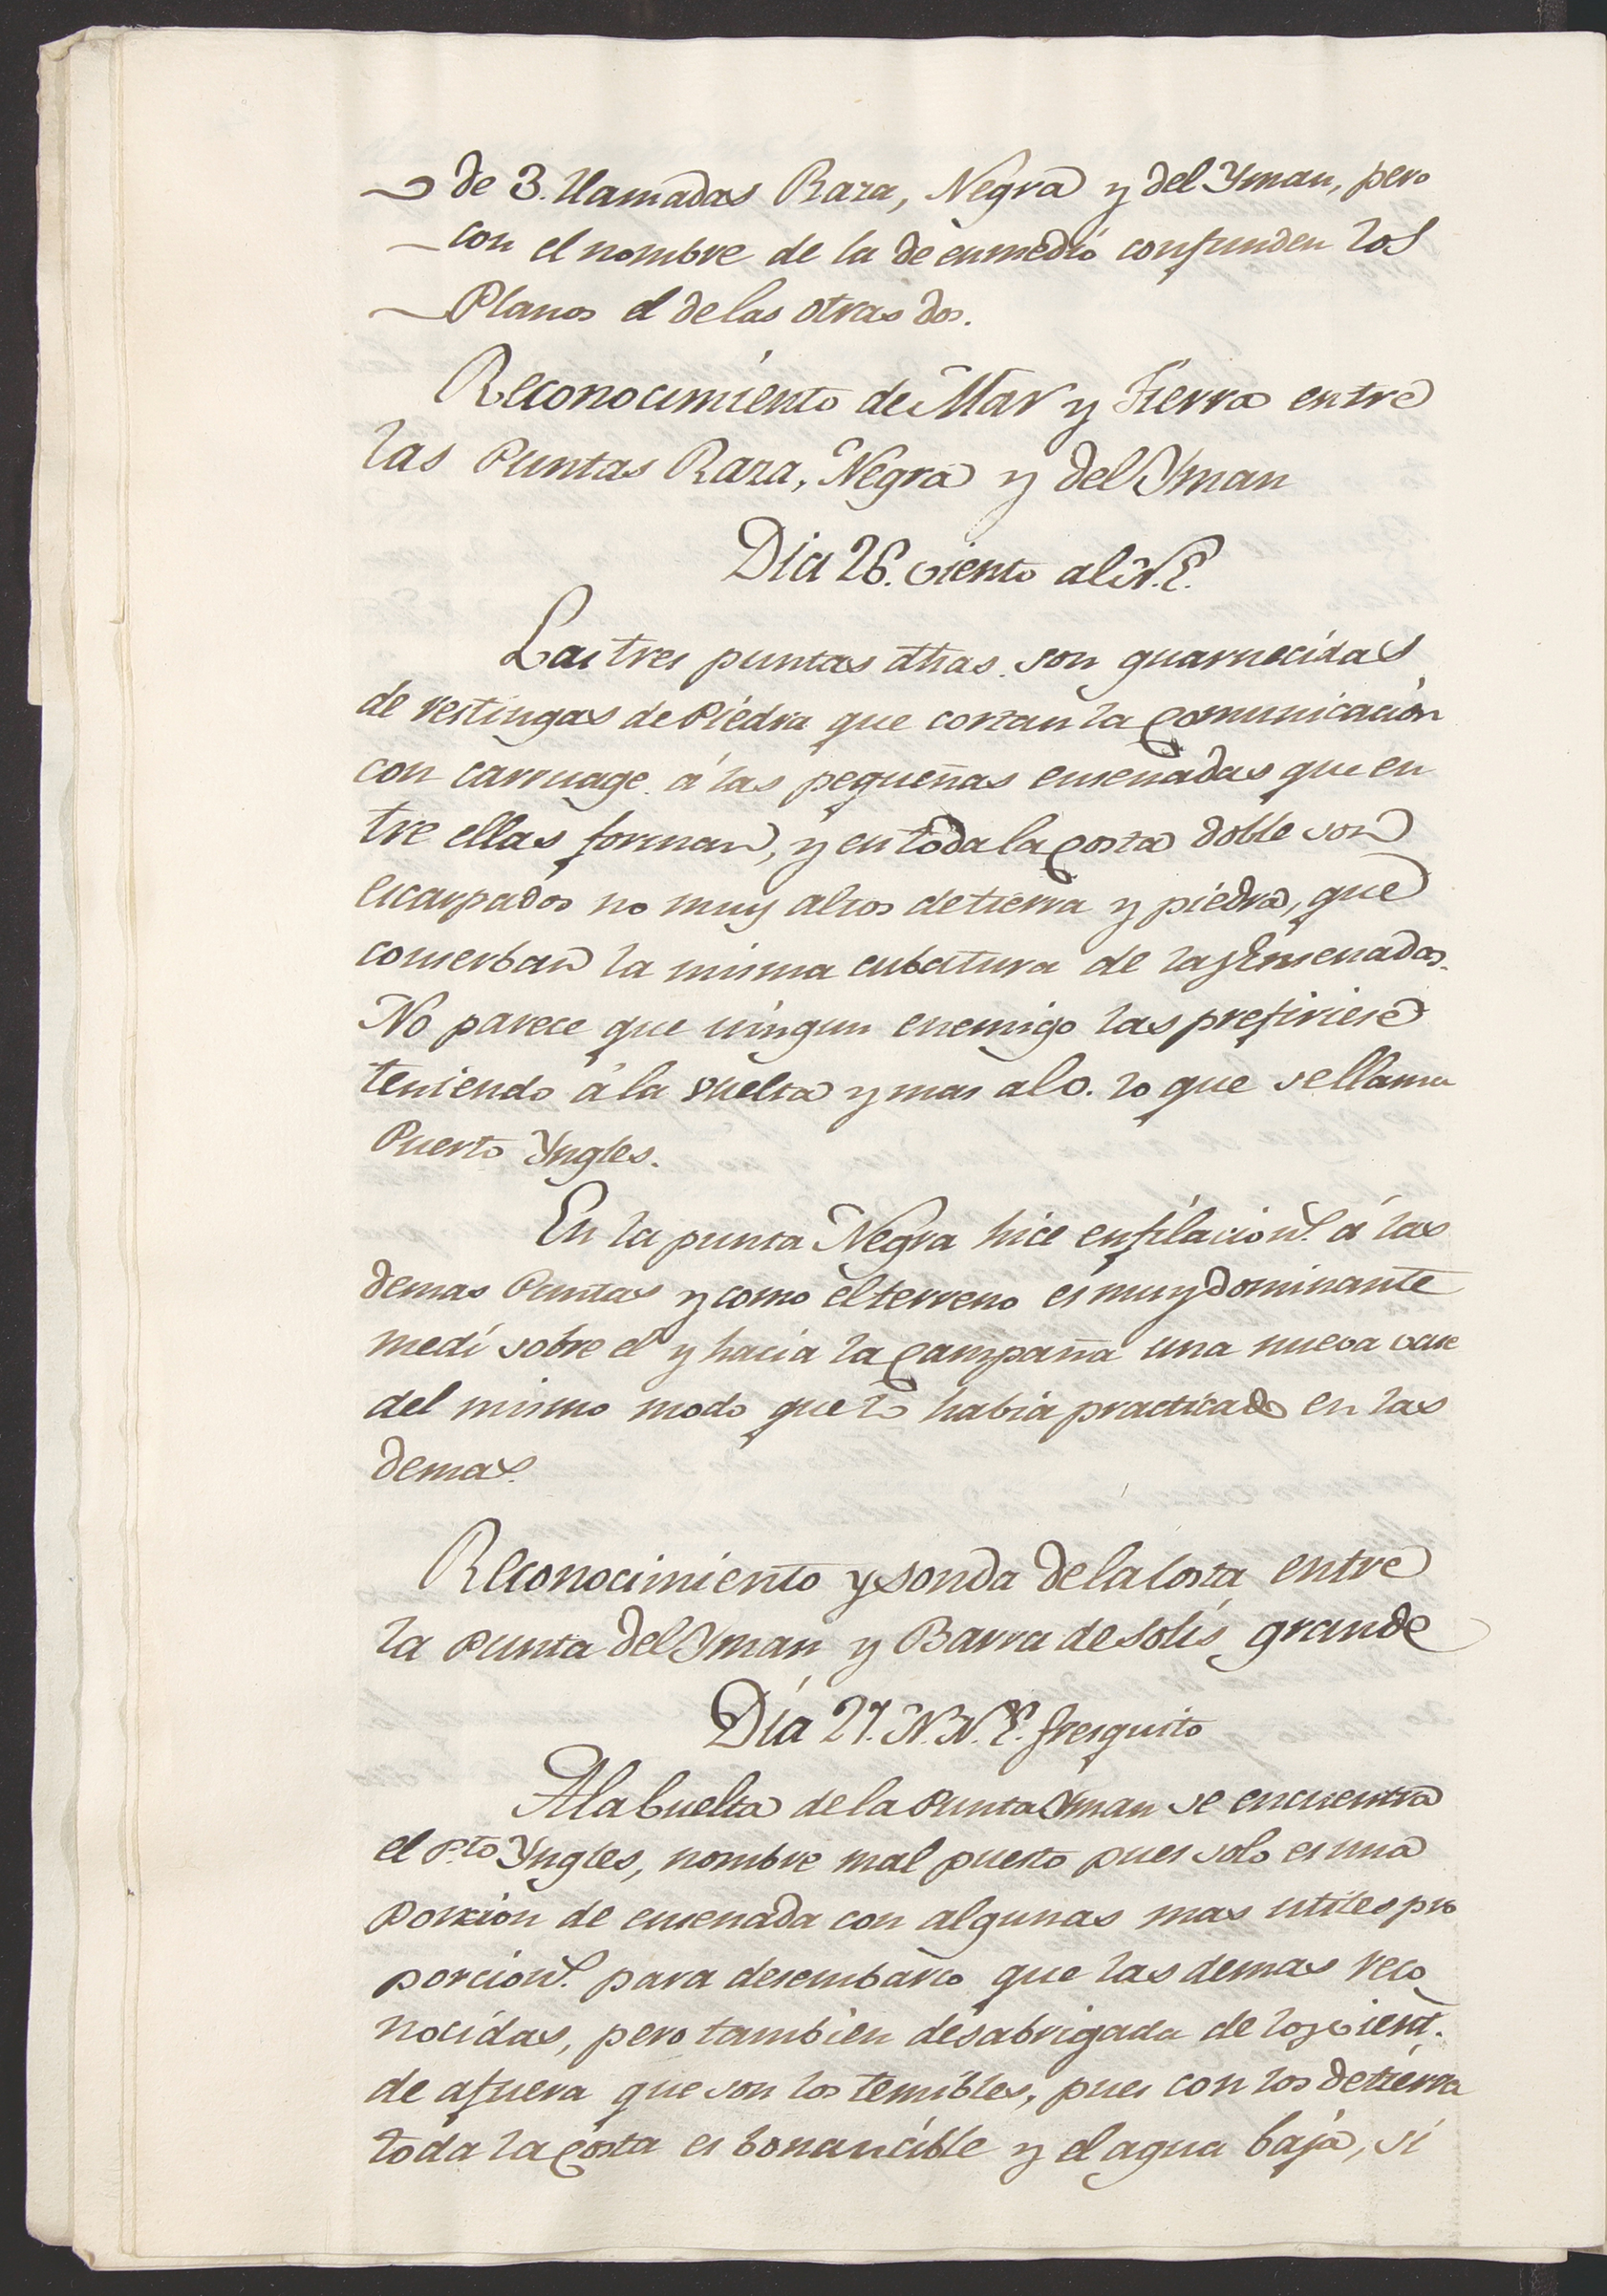 de 3. llamadas Raza, Negra y del Yman, pero
con el nombre de la de enmedio confunden los
Planos el de las otras dos.
Reconocimiento de Mar y Tierra entre
las Puntas Raza, Negra y del Yman
Dia 26. viento al N.E.
Las tres puntas dhas. son guarnecidas
de restingas de Piedra que cortan la Comunicacion
con carruage á las pequeñas ensenadas que en
tre ellas forman, y en toda la Costa doble son
escarpados no muy altos de tierra y piedra, que
conserban la misma curbatura de las Ensenadas.
No parece que ningun enemigo las prefiriese
teniendo á la vuelta y mas al O. lo que se llama
Puerto Yngles.
En la punta Negra hice enfilacion.s á las
demas Puntas y como el terreno es muy dominante
medí sobre el y hacia la Campaña una nueva vase
del mismo modo que lo habia practicado en las
demas.
Reconocimiento y sonda de la Costa entre
la Punta del Yman y Barra de Solis grande
Día 27. N.N.E. fresquito
A la buelta de la Punta Yman se encuentra
el P.to Yngles, nombre mal puesto pues solo es una
Porcion de ensenada con algunas mas utiles pro
porcion.s para desembarco que las demas reco
nocidas, pero tambien desabrigada de los vient.s
de afuera que son los temibles, pues con los de tierra
toda la Costa es bonancible y el agua baja, si